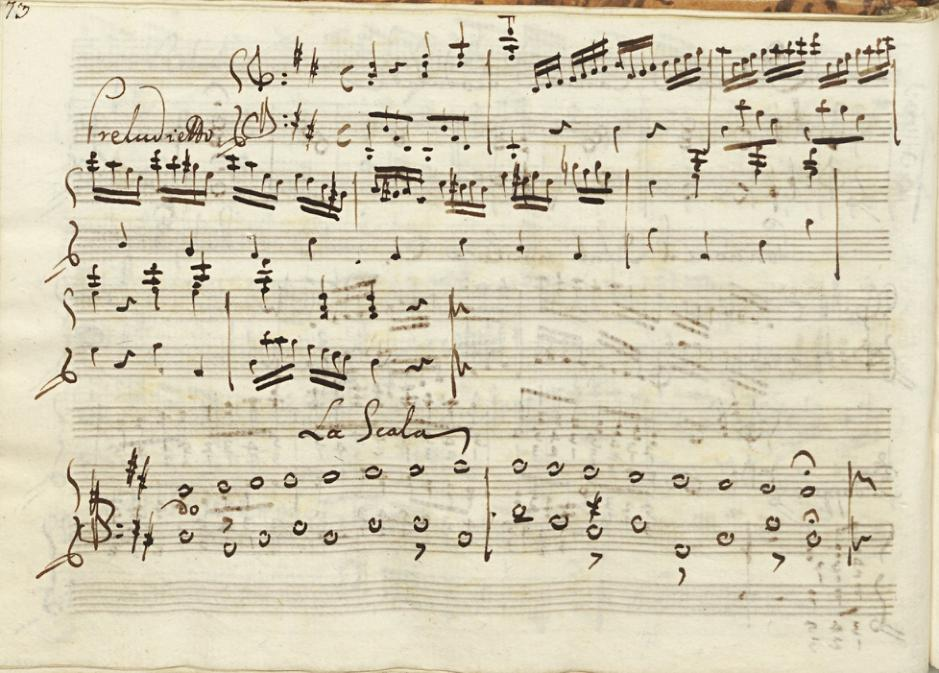 73
Preludietto
La Scala
do